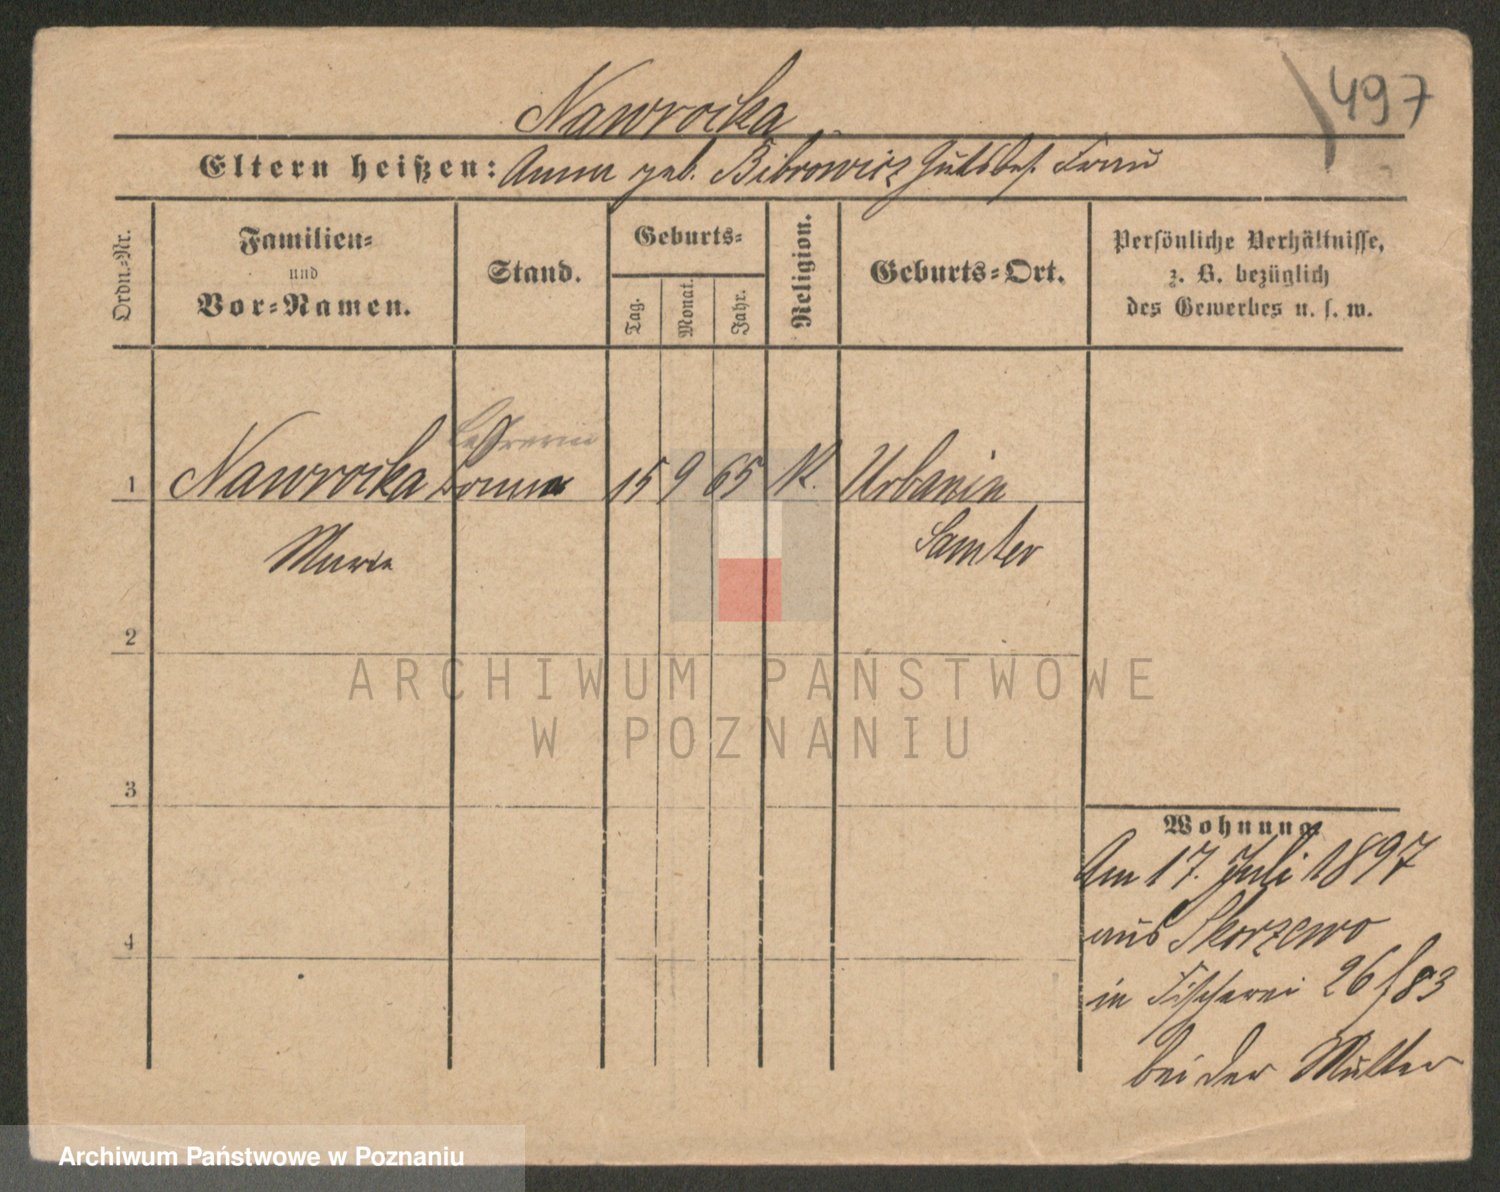 497
Nawrocka
Eltern heißen: Anna geb. Bibrowicz Gutsbes. Frau
Ordn.-Nr.
Familien-
und
Vor-Namen.
Stand.
Geburts-
Tag.
Monat.
Jahr.
Religion.
Geburts-Ort.
Persönliche Verhältnisse,
z. B. bezüglich
des Gewerbes u. s. w.
Lehrerin
1 Nawrocka 15 9 65 K. Urbanin
Marie Samter
2
3
4
Wohnung.
Am 17. Juli 1897
aus Skorzewo
in Fischerei 26/83
bei der Mutter
ARCHIWUM PAŃSTWOWE
W POZNANIU
Archiwum Państwowe w Poznaniu